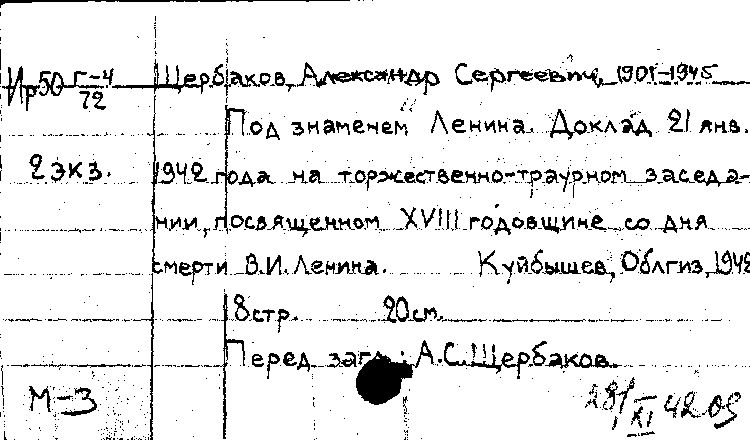 Ир50 Г-4/72 Щербаков, Александр Сергеевич, 1901-1945
Под знаменем Ленина. Доклад 21 янв.
2 экз. 1942 года на торжественно-траурном заседа-
нии, посвященном XVIII годовщине со дня
смерти В.И. Ленина. Куйбышев, Облгиз, 1942
18 стр. 20 см.
Перед загл.: А.С. Щербаков.
М-3
28/XI 42